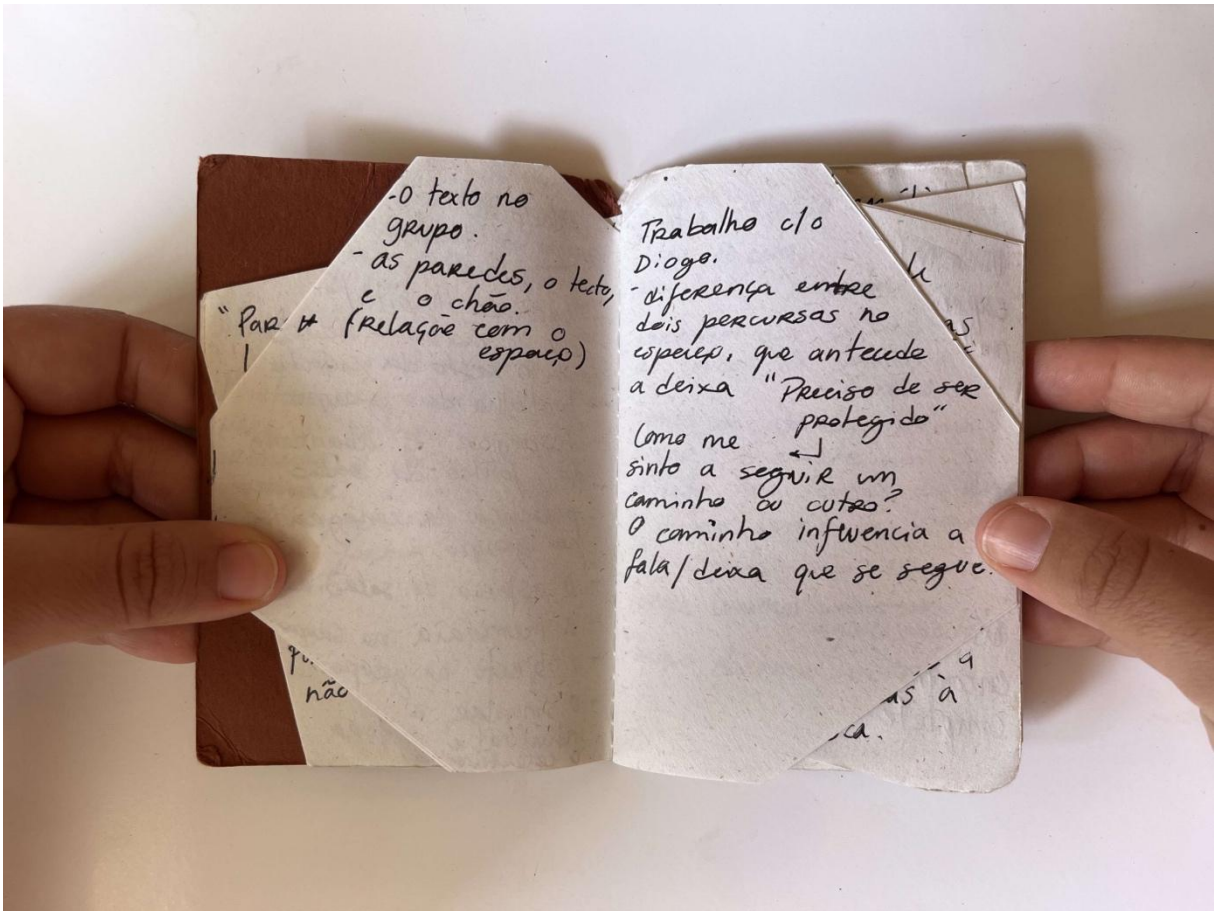 -o texto no
grupo.
- as paredes, o texto,
e o chão.
(relação com o
espaço)
"Par
não
Trabalho c/o
Diogo.
- diferença entre
dois percursas no
espaço, que antecede
a deixa "Preciso de ser
protegido"
Como me
sinto a seguir um
caminho ou outro?
O caminho influencia a
fala/deixa que se segue.
as
a
as à
ca.